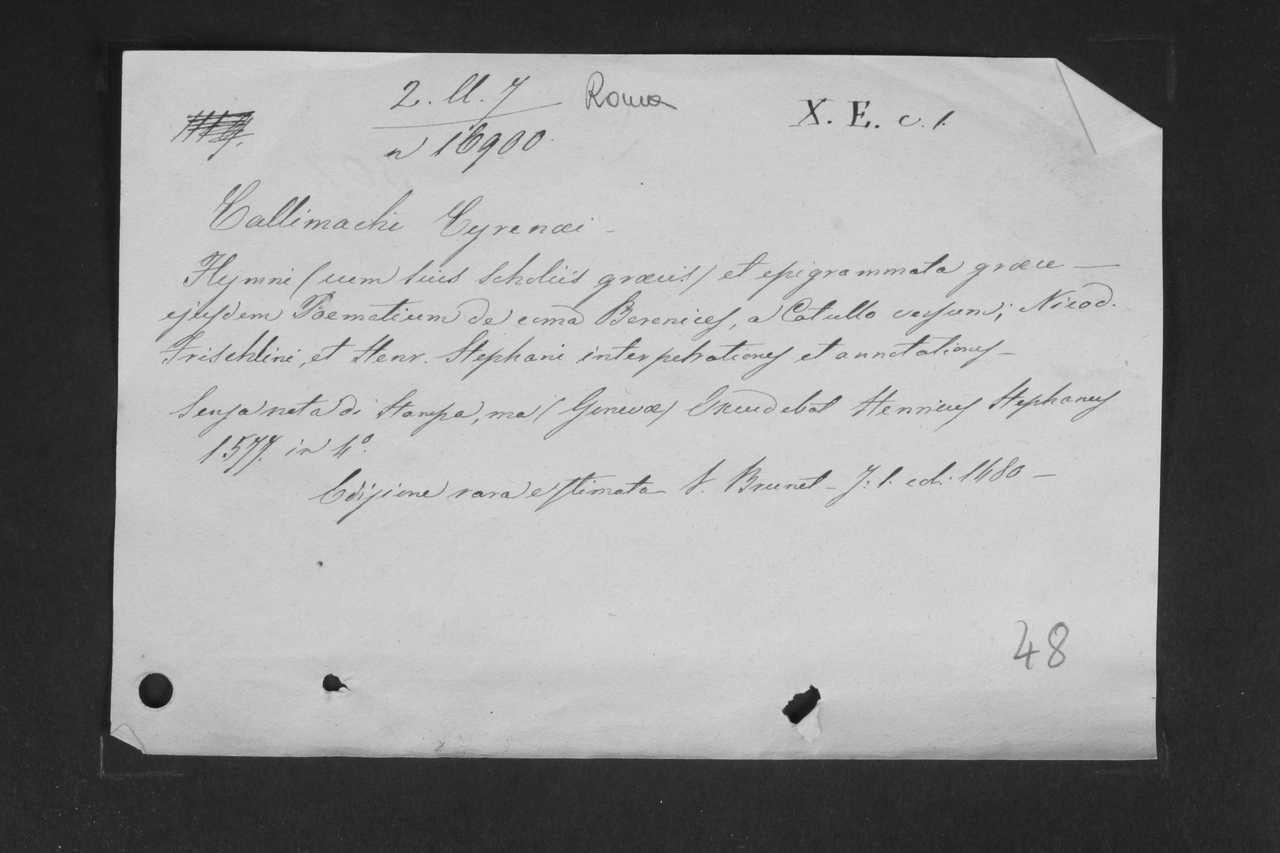 2. U. 7 Roma X. E. c. 1.
n 16900.
Callimachi Cyrenæi -
Hymni (cum suis Scholiis græcis) et epigrammata græce —
ejusdem Poematium de coma Berenices, a Catullo versum; Nicod.
Frischlini, et Henr. Stephani interpretationes et annotationes -
Senza nota di Stampa, ma (Genevæ) Excudebat Henricus Stephanus
1577. in 4°.
Edizione rara e stimata V. Brunet - T. 1. col. 1480 —
48